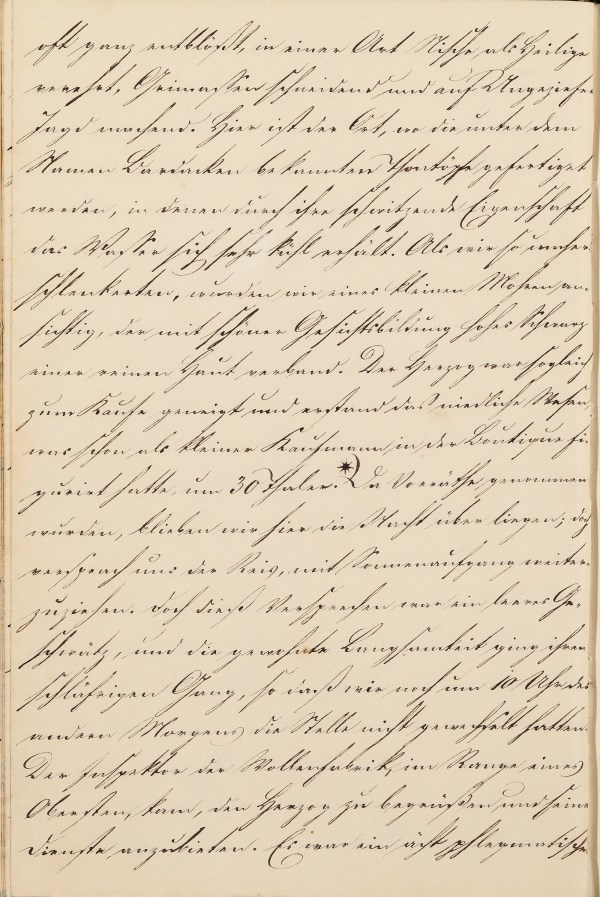 oft ganz entblößt, in einer Art Nische, als Heilige
verehrt, Grimassen schneidend und auf Ungeziefer
Jagd machend. Hier ist der Ort, wo die unter dem
Namen Bardacken bekannten Thontöpfe gefertiget
werden, in denen durch ihre schwitzende Eigenschaft
das Wasser sich sehr kühl erhält. Als wir so umher
schlenkerten, wurden wir eines kleinen Mohren an-
sichtig, der mit schöner Gesichtsbildung hohes Schwarz
einer reinen Haut verband. Der Herzog war sogleich
zum Kaufe geneigt und erstand das niedliche Wesen,
was schon als kleiner Kaufmann in der Boutique fi-
gurirt hatte, um 30 Thaler. Da Vorräthe genommen
wurden, blieben wir hier die Nacht über liegen; doch
versprach uns der Reis, mit Sonnenaufgang weiter
zuziehen. Doch dieß Versprechen war ein leeres Ge-
schwätz, und die gewohnte Langsamkeit ging ihren
schläfrigen Gang, so daß wir noch um 10 Uhr des
andern Morgens die Stelle nicht gewechselt hatten.
Der Inspektor der Wollenfabrik, im Range eines
Obersten, kam, den Herzog zu begrüßen und seine
Dienste anzubieten. Es war ein ächt phlegmatischer